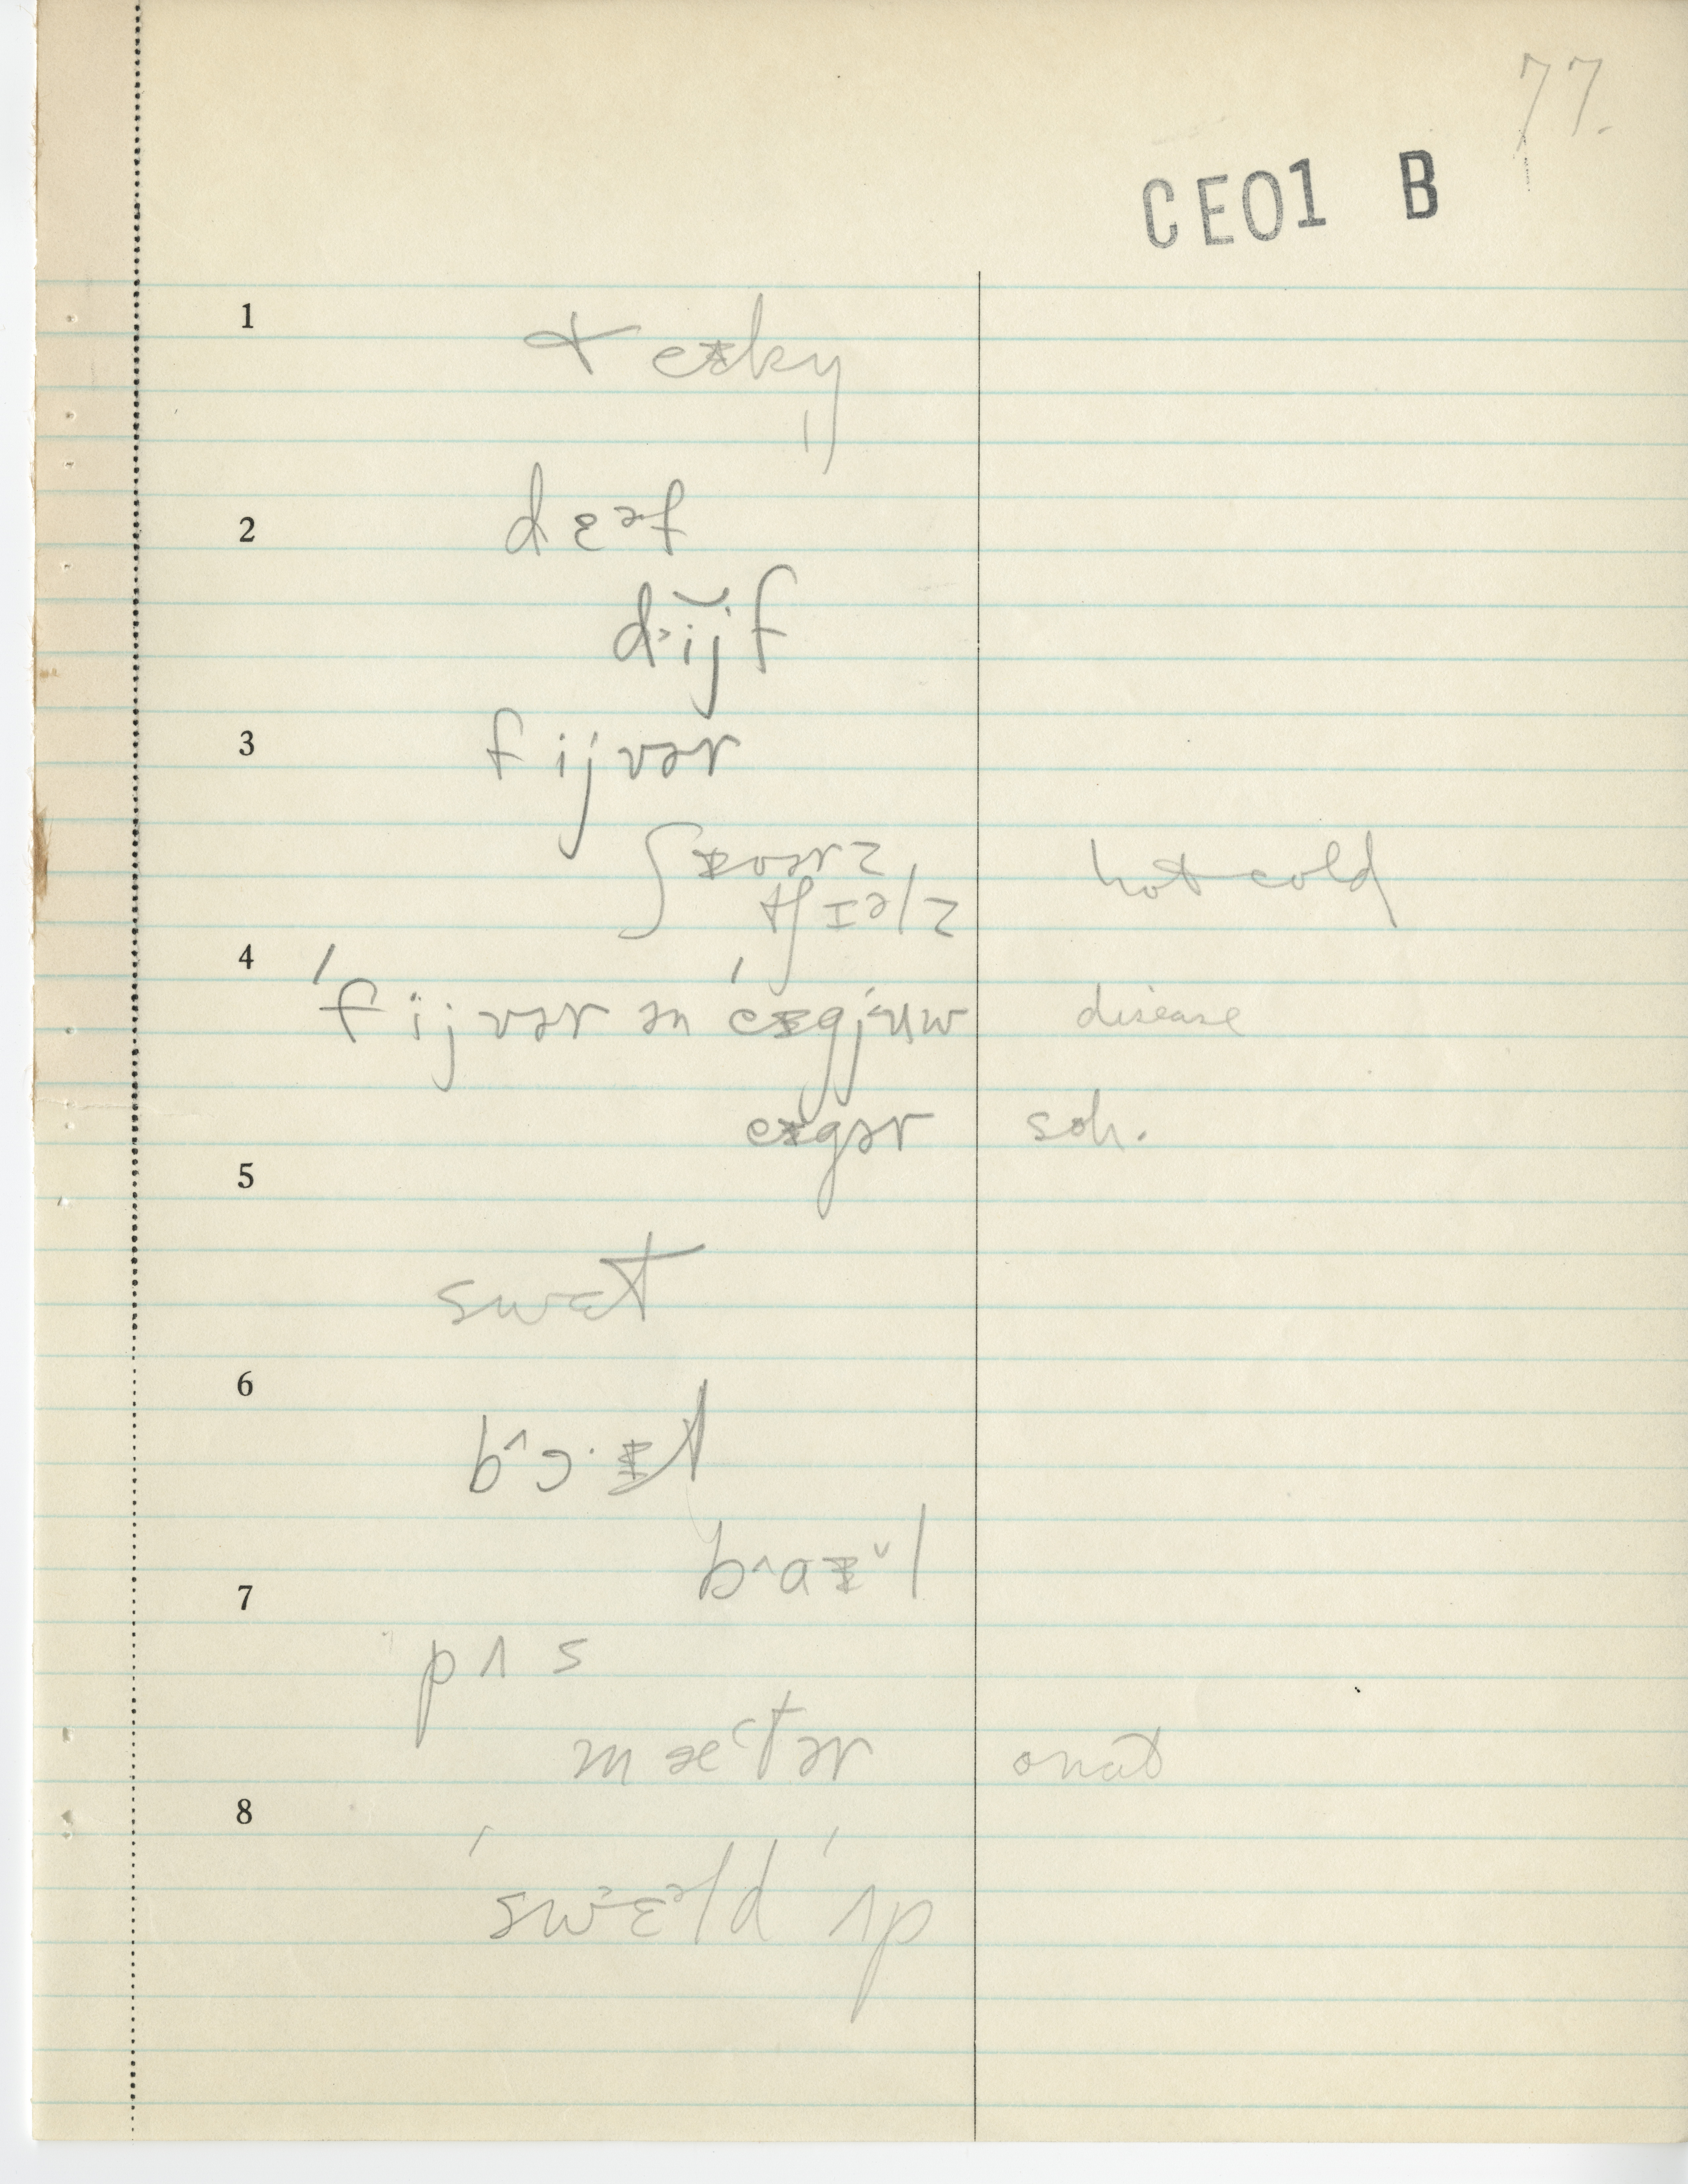 77.
CE01 B
1
+ eɪky
2
dɛəf
dɪ̆jf
3
fijvər
ʃɪvərz
tʃɪəlz hot cold
4
ˈfijvər ən ˈeɪgjuw disease
eɪgər sch.
5
swɛt
6
b^ɔ·ɪt
b^aɪ˅l
7
pʌs
mætər onat
8
ˈswɛəld ˈʌp